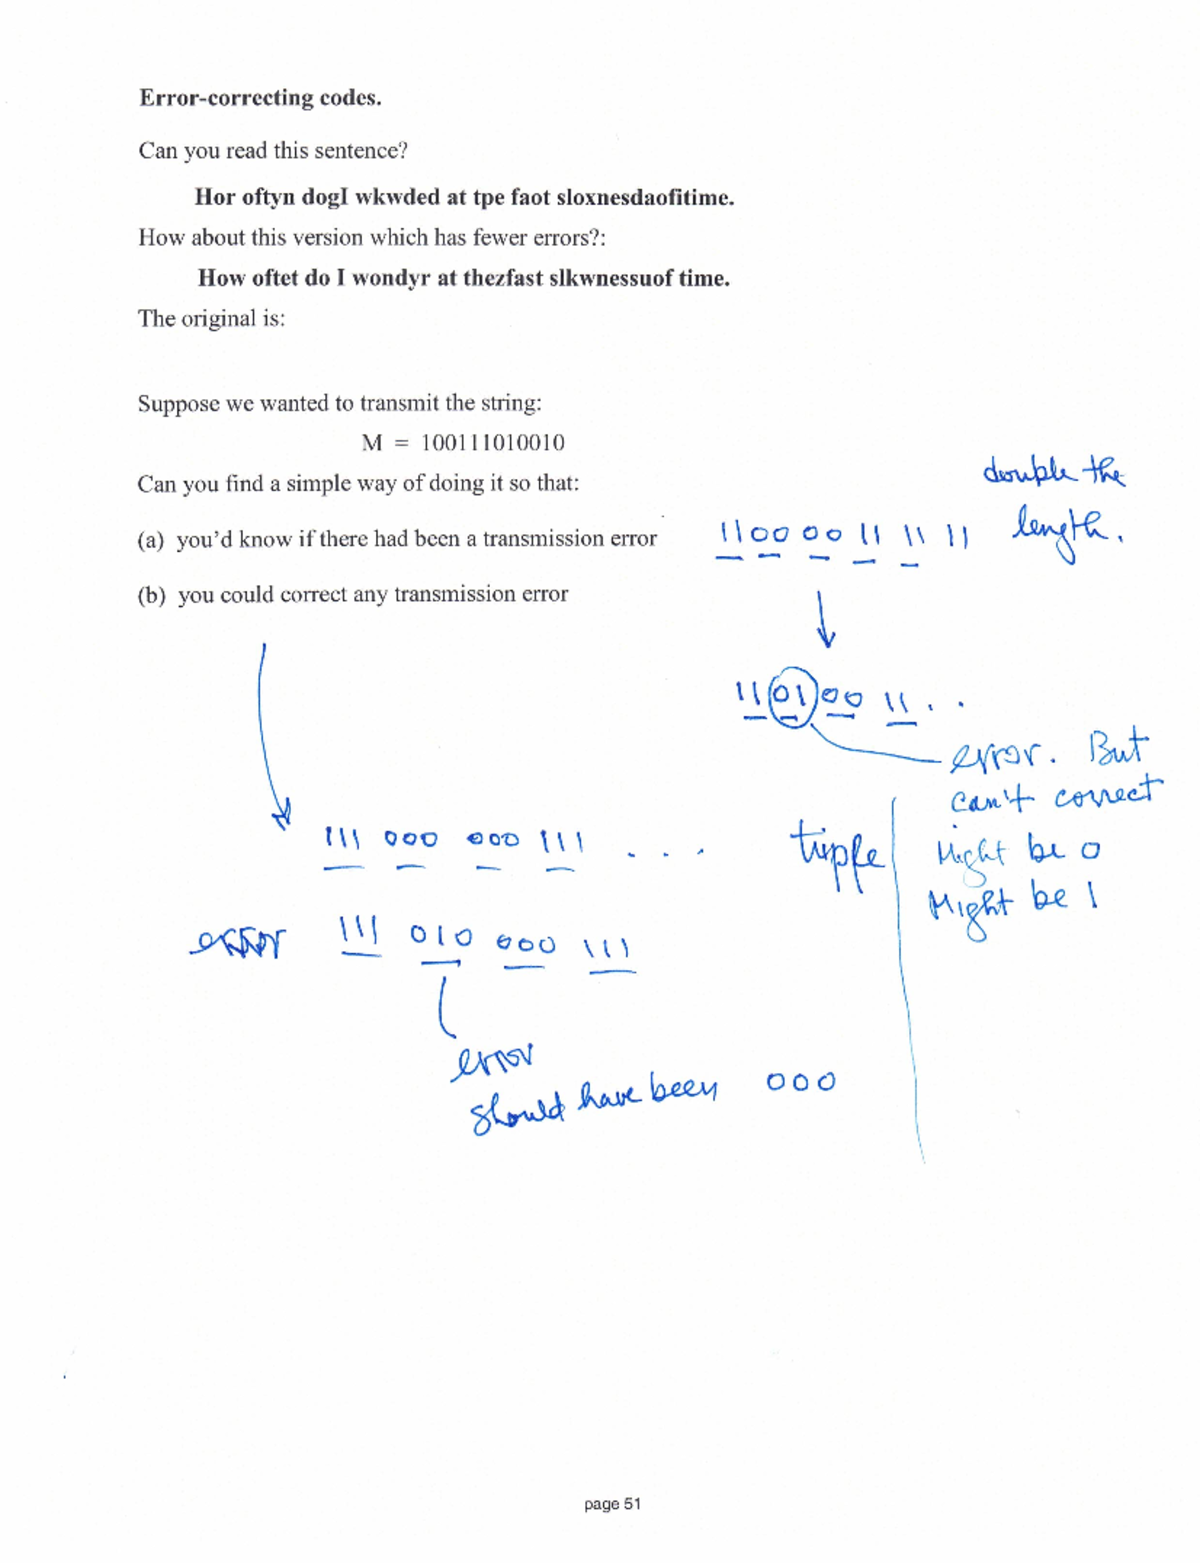 Error-correcting codes.
Can you read this sentence?
Hor oftyn dogI wkwded at tpe faot sloxnesdaofitime.
How about this version which has fewer errors?:
How oftet do I wondyr at thezfast slkwnessuof time.
The original is:
Suppose we wanted to transmit the string:
M = 100111010010
Can you find a simple way of doing it so that:
double the
length.
(a) you'd know if there had been a transmission error
11 00 00 11 11 11
(b) you could correct any transmission error
11 01 00 11 . .
error. But
can't correct
Might be 0
Might be 1
111 000 000 111 . . .
triple
error 111 010 000 111
error
should have been 000
page 51